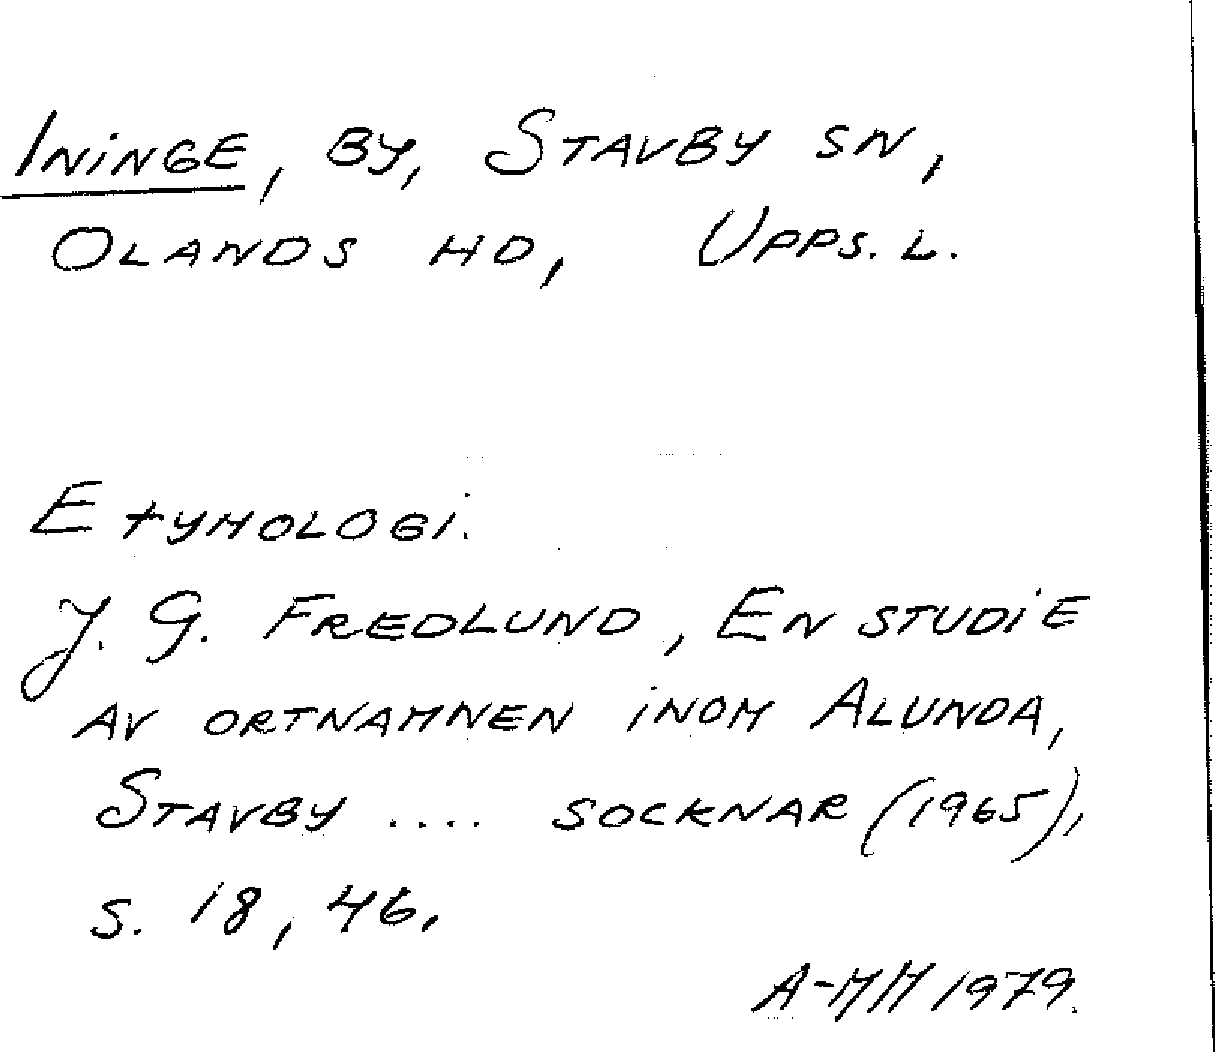 Ininge, by, Stavby sn,
Olands hd, Upps. l.
Etymologi.
J. G. Fredlund, En studie
av ortnamnen inom Alunda,
Stavby .... socknar (1965),
s. 18, 46.
A-MM 1979.